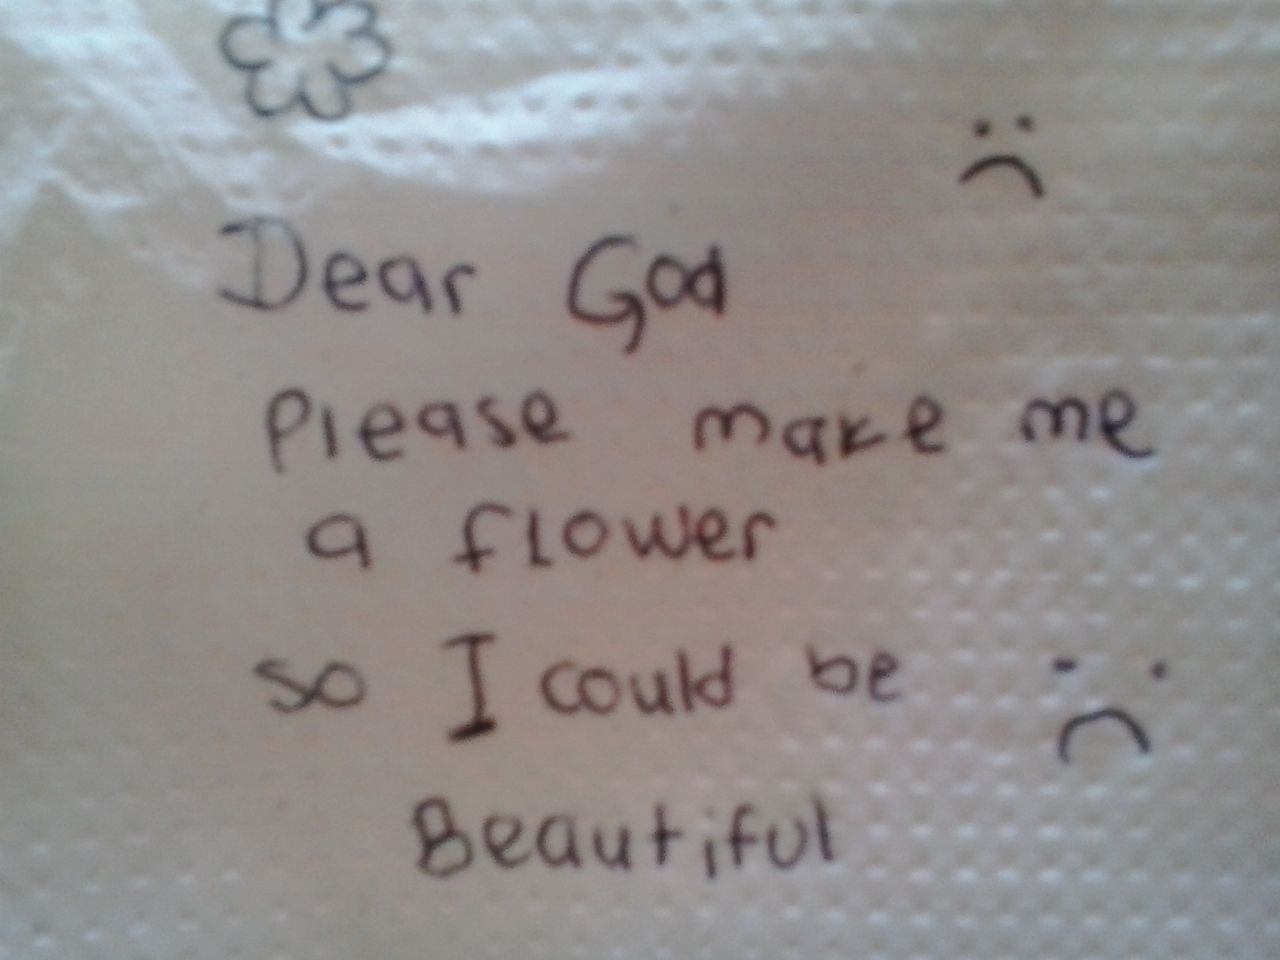 Dear God
Please make me
a flower
so I could be
Beautiful